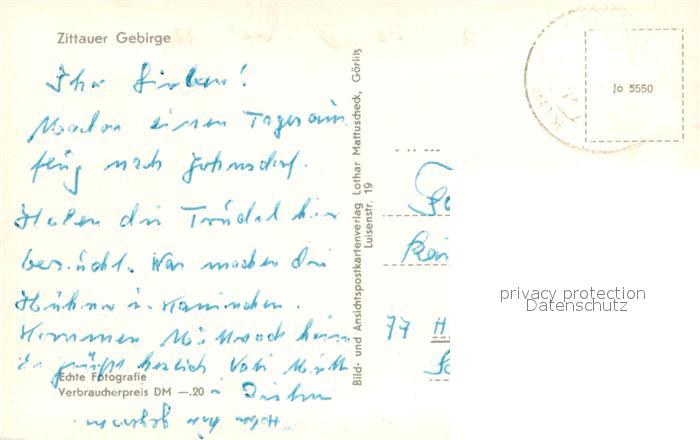 Zittauer Gebirge
Ihr Lieben!
Machen einen Tagesaus
flug nach Johnsdorf.
Haben die Trüdel hier
besucht. Was machen die
Hühner u. Kaninchen.
Kommen Mittwoch heim
Es grüßt herzlich Vati Mutti
u.
Haben hier gegessen.
Echte Fotografie
Verbraucherpreis DM —.20
Bild- und Ansichtspostkartenverlag Lothar Mattuscheck, Görlitz
Luisenstr. 19
Jo 5550
77 H
privacy protection
Datenschutz